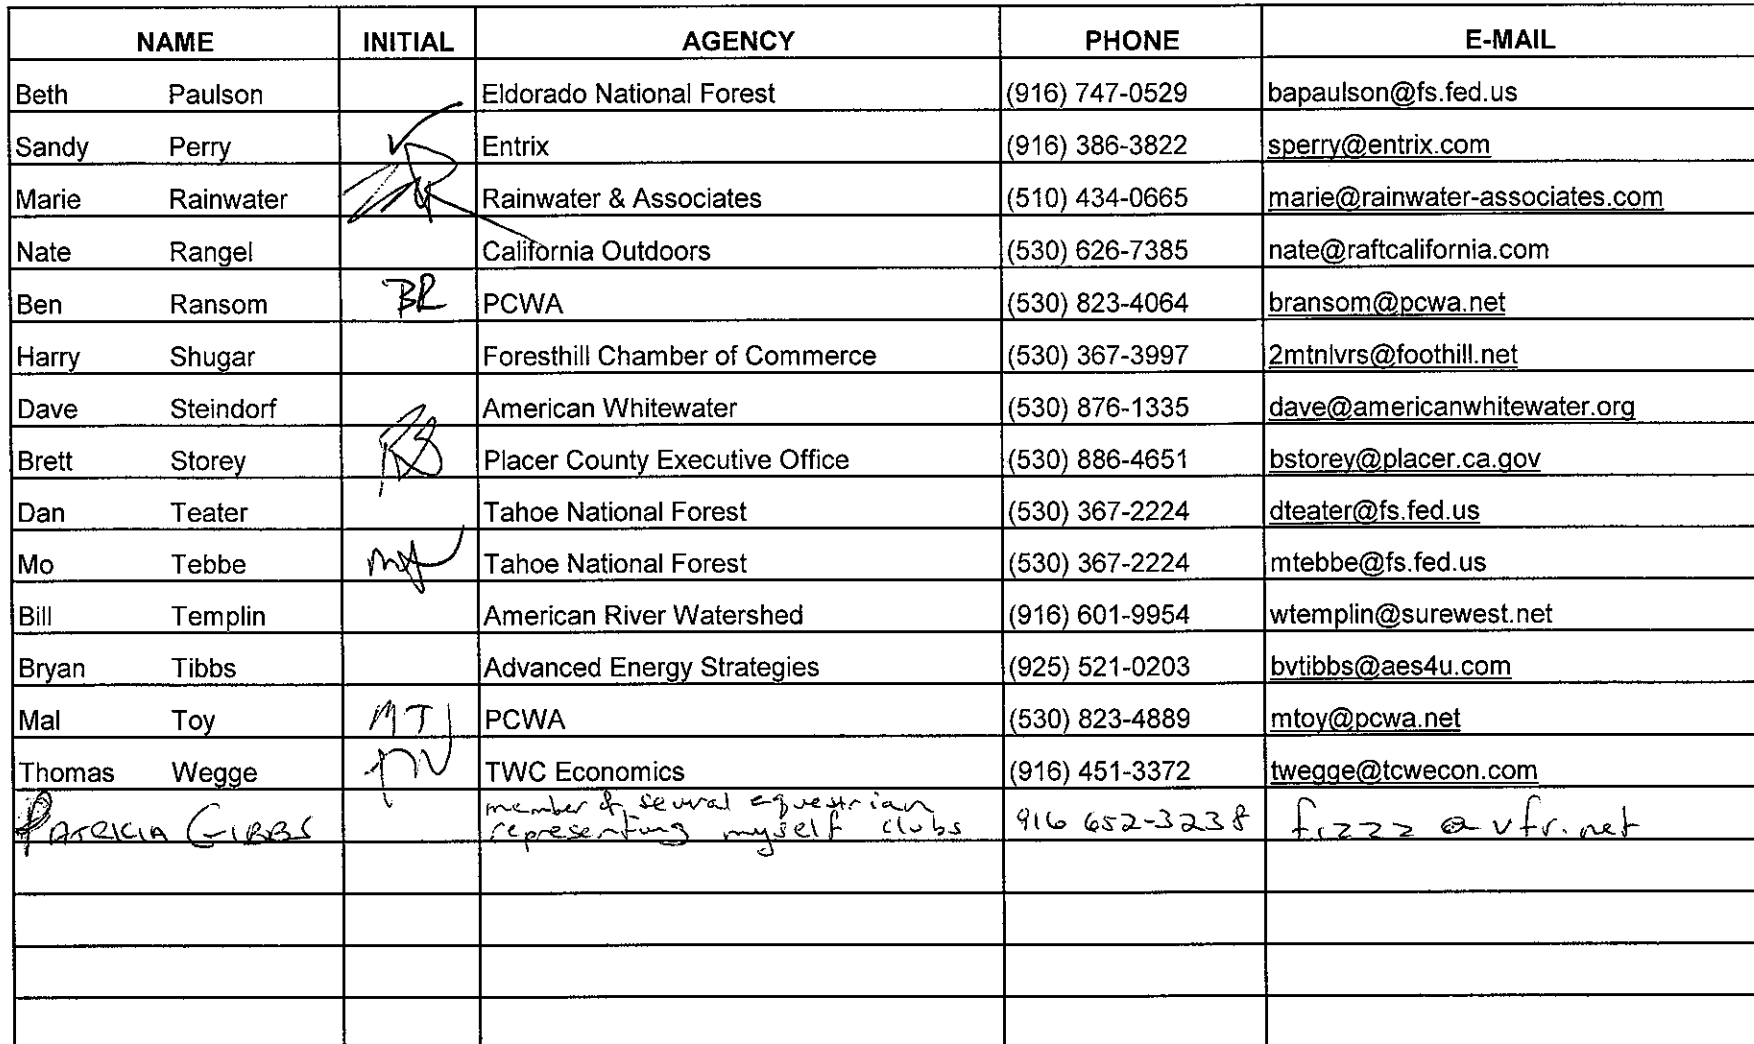 NAME INITIAL AGENCY PHONE E-MAIL
Beth Paulson Eldorado National Forest (916) 747-0529 bapaulson@fs.fed.us
Sandy Perry Entrix (916) 386-3822 sperry@entrix.com
Marie Rainwater Rainwater & Associates (510) 434-0665 marie@rainwater-associates.com
Nate Rangel California Outdoors (530) 626-7385 nate@raftcalifornia.com
Ben Ransom BR PCWA (530) 823-4064 bransom@pcwa.net
Harry Shugar Foresthill Chamber of Commerce (530) 367-3997 2mtnlvrs@foothill.net
Dave Steindorf American Whitewater (530) 876-1335 dave@americanwhitewater.org
Brett Storey Placer County Executive Office (530) 886-4651 bstorey@placer.ca.gov
Dan Teater Tahoe National Forest (530) 367-2224 dteater@fs.fed.us
Mo Tebbe Tahoe National Forest (530) 367-2224 mtebbe@fs.fed.us
Bill Templin American River Watershed (916) 601-9954 wtemplin@surewest.net
Bryan Tibbs Advanced Energy Strategies (925) 521-0203 bvtibbs@aes4u.com
Mal Toy MT PCWA (530) 823-4889 mtoy@pcwa.net
Thomas Wegge TWC Economics (916) 451-3372 twegge@tcwecon.com
member of several equestrian
PATRICIA GIBBS representing myself clubs 916 652-3238 frzzz@vfr.net